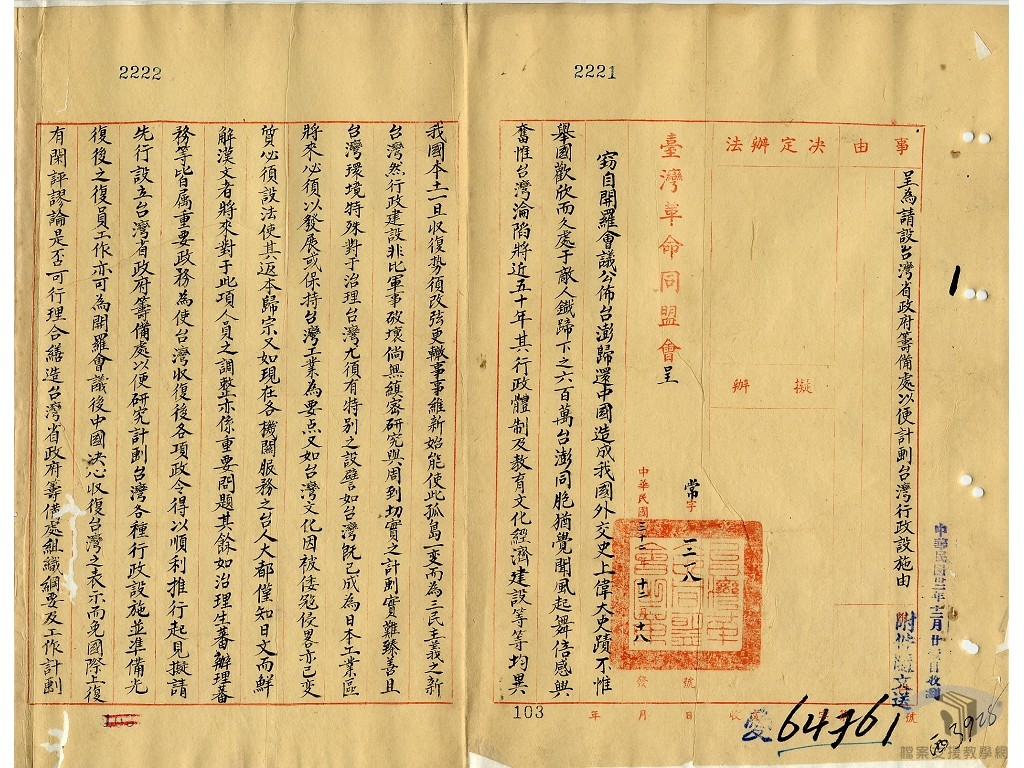 2221
事由
決定辦法
擬辦
呈為請設台灣省政府籌備處以便計劃台灣行政設施由
附件隨文送
臺灣革命同盟會呈
常字
一二八
號
中華民國三十二年十二月十八日發
竊自開羅會議公佈台澎歸還中國造成我國外交史上偉大史蹟不惟
舉國歡欣而久處于敵人鐵蹄下之六百萬台澎同胞猶覺聞風起舞倍感興
奮惟台灣淪陷將近五十年其行政體制及教育文化經濟建設等等均異
年月日收
號
64761
103
1
西3928
2222
我國本土一旦收復勢須改弦更轍事事維新始能使此孤島一變而為三民主義之新
台灣然行政建設非比軍事破壞倘無縝密研究與周到切實之計劃實難臻善且
台灣環境特殊對于治理台灣尤須有特别之設譬如台灣既已成為日本工業區
將來必須以發展或保持台灣工業為要点又如台灣文化因被倭寇侵畧亦已變
質必須設法使其返本歸宗又如現在各機關服務之台人大都僅知日文而鮮
解漢文者將來對于此項人員之調整亦係重要問題其餘如治理生蕃辦理蕃
務等皆屬重要政務為使台灣收復後各項政令得以順利推行起見擬請
先行設立台灣省政府籌備處以便研究計劃台灣各種行政設施並準備光
復後之復員工作亦可為開羅會議後中國決心收復台灣之表示而免國際上復
有閑評謬論是否可行理合繕造台灣省政府籌備處組織綱要及工作計劃
檔案支援教學網